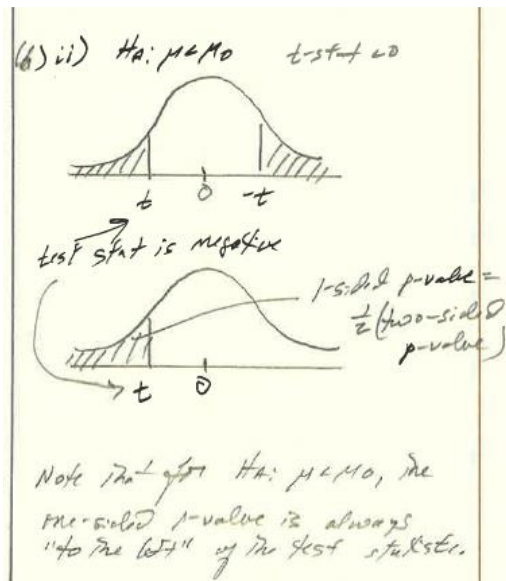 (b) ii) HA: μ < μ0 t-stat < 0
t 0 -t
test stat is negative
1-sided p-value =
1/2 (two-sided
p-value)
t 0
Note that for HA: μ < μ0, the
one-sided p-value is always
"to the left" of the test statistic.